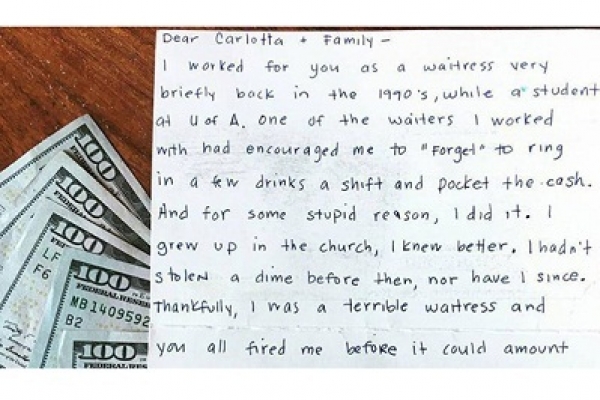 Dear Carlotta + Family –
I worked for you as a waitress very
briefly back in the 1990's, while a student
at U of A. One of the waiters I worked
with had encouraged me to "forget" to ring
in a few drinks a shift and pocket the cash.
And for some stupid reason, I did it. I
grew up in the church, I knew better. I hadn't
stolen a dime before then, nor have I since.
Thankfully, I was a terrible waitress and
you all fired me before it could amount
100
100
100
LF
F6
100
FEDERAL RESE
MB 1409592
B2
100
FEDERAL RESER